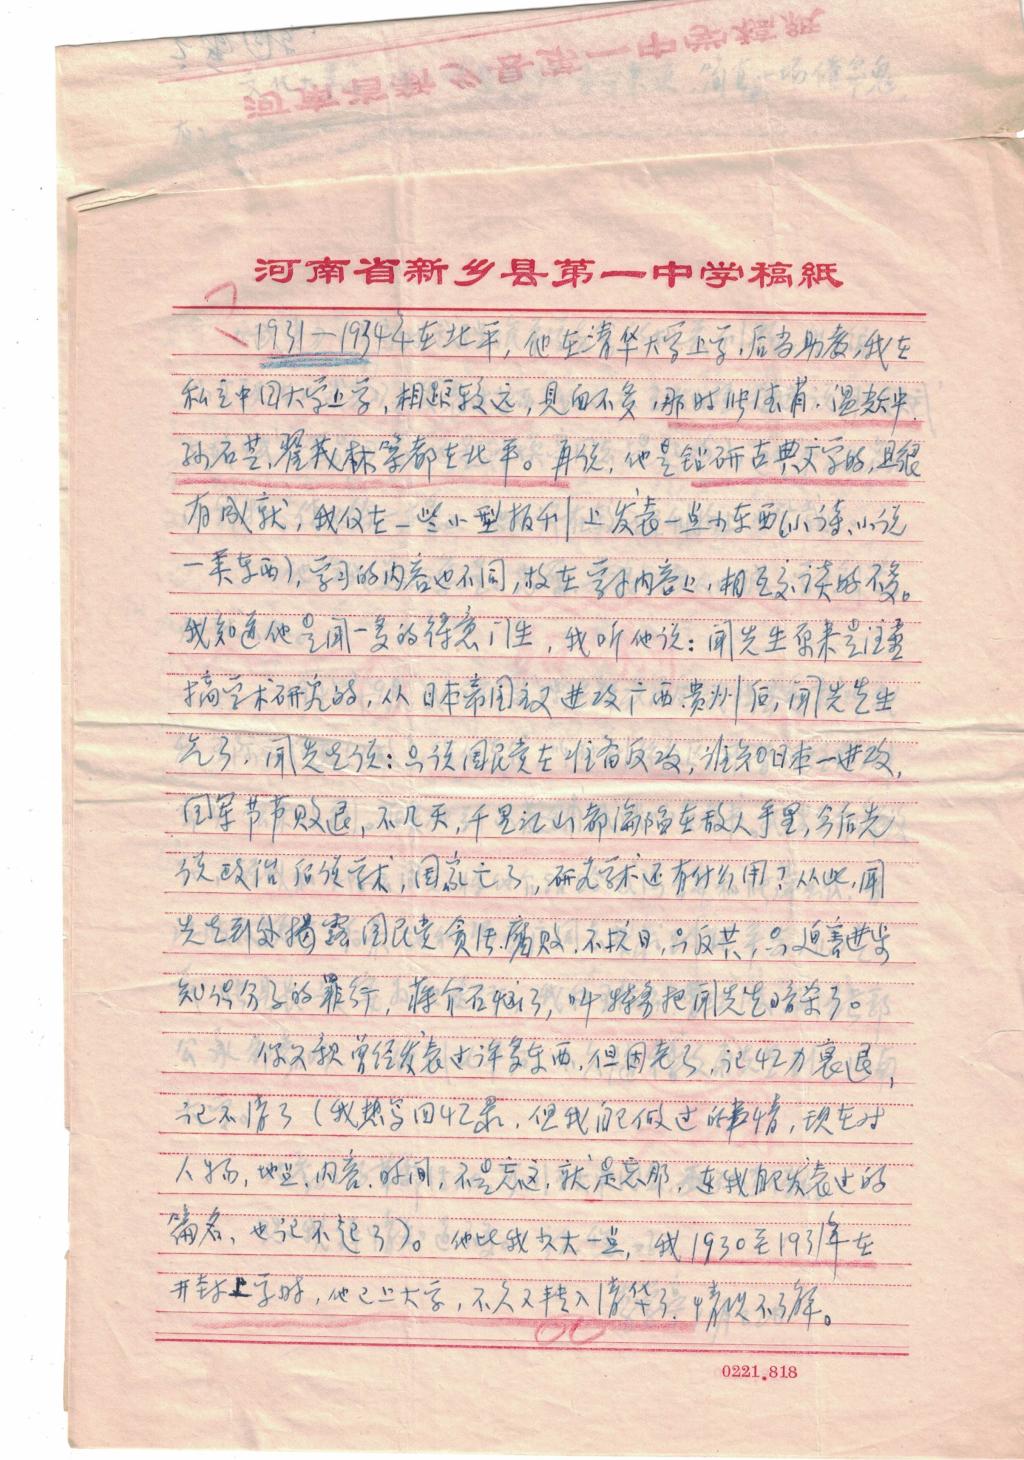 河南省新乡县第一中学稿紙
1931—1934年在北平，他在清华大学上学，后当助教，我在
私立中国大学上学，相距较远，见面不多，那时
孙石芸、翟茂林等都在北平。再说，他是钻研古典文学的，且很
有成就，我仅在一些小型报刊上发表一些小东西（小诗、小说
一类东西），学习的内容也不同，故在学术内容上，相互交谈的不多。
我知道他是闻一多的得意门生，我听他说：闻先生原来是注重
搞学术研究的，从日本帝国主义进攻广西、贵州后，闻先生
气了，闻先生说：只说国民党在准备反攻，谁知日本一进攻，
国军节节败退，不几天，千里江山都沦陷在敌人手里，今后先
说政治后谈学术，国家亡了，研究学术还有什么用？从此，闻
先生到处揭露国民党贪污、腐败、不抗日，只反共，只迫害进步
知识分子的罪行，蒋介石恼了，叫特务把闻先生暗杀了。
你父亲曾经发表过许多东西，但因老了，记忆力衰退，
记不清了（我想写回忆录，但我自己做过的事情，现在对
人物、地点、内容、时间，不是忘这，就是忘那，连我自己发表过的
篇名，也记不起了）。他比我大一些，我1930至1931年在
开封上学时，他已上大学，不久又转入清华了，情况不了解。
0221.818